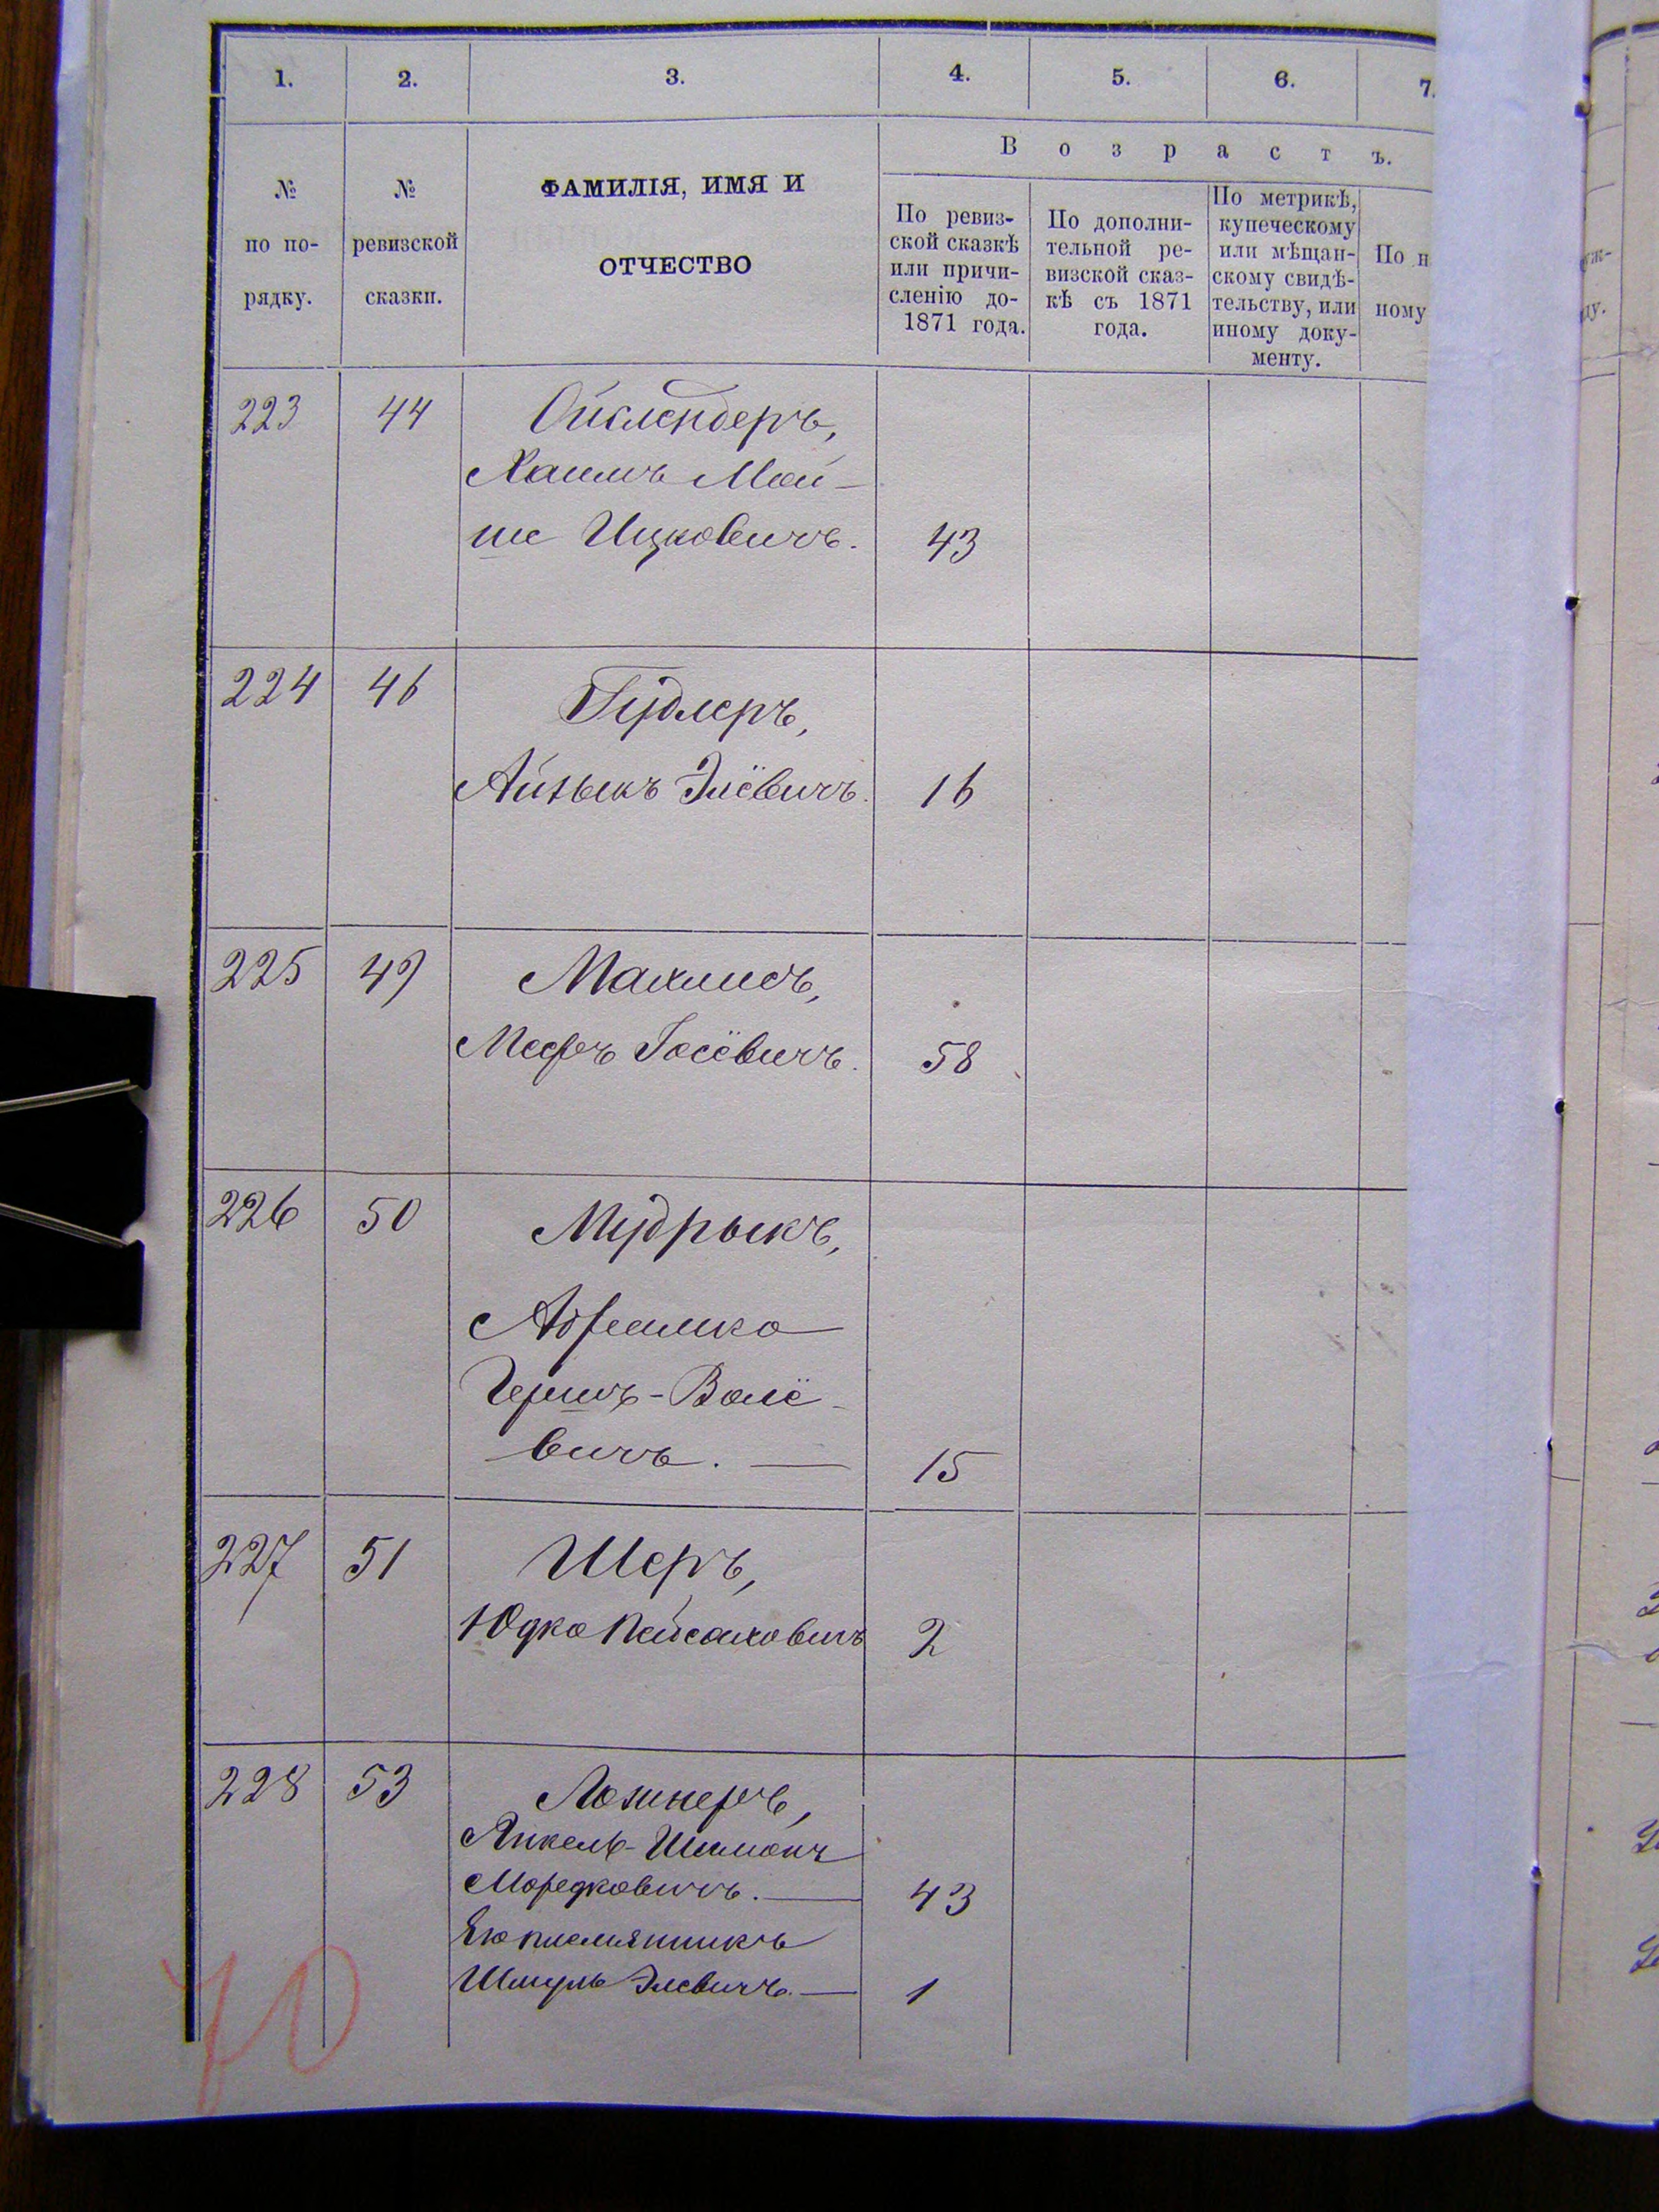 1. 2. 3. 4. 5. 6. 7.
В о з р а с т ъ.
№ по по- рядку.
№ ревизской сказки.
ФАМИЛІЯ, ИМЯ И
ОТЧЕСТВО
По ревиз-
ской сказкѣ
или причи-
сленію до-
1871 года.
По дополни-
тельной ре-
визской сказ-
кѣ съ 1871
года.
По метрикѣ,
купеческому
или мѣщан-
скому свидѣ-
тельству, или
иному доку-
менту.
По н
ному
223 44 Ойслендеръ,
Хаимъ Мой-
ше Ицковичъ. 43
224 46 Гудлеръ,
Айзыкъ Элёвичъ. 16
225 49 Махлисъ,
Мееръ Іосёвичъ. 58
226 50 Мудрыкъ,
Абрамко
Гершъ-Волё-
вичъ. — 15
227 51 Шеръ,
Юдко Пейсаховичъ 2
228 53 Лознеръ,
Янкель-Шимонъ
Мордковичъ. — 43
Его племянникъ
Шмуль Элевичъ. — 1
70